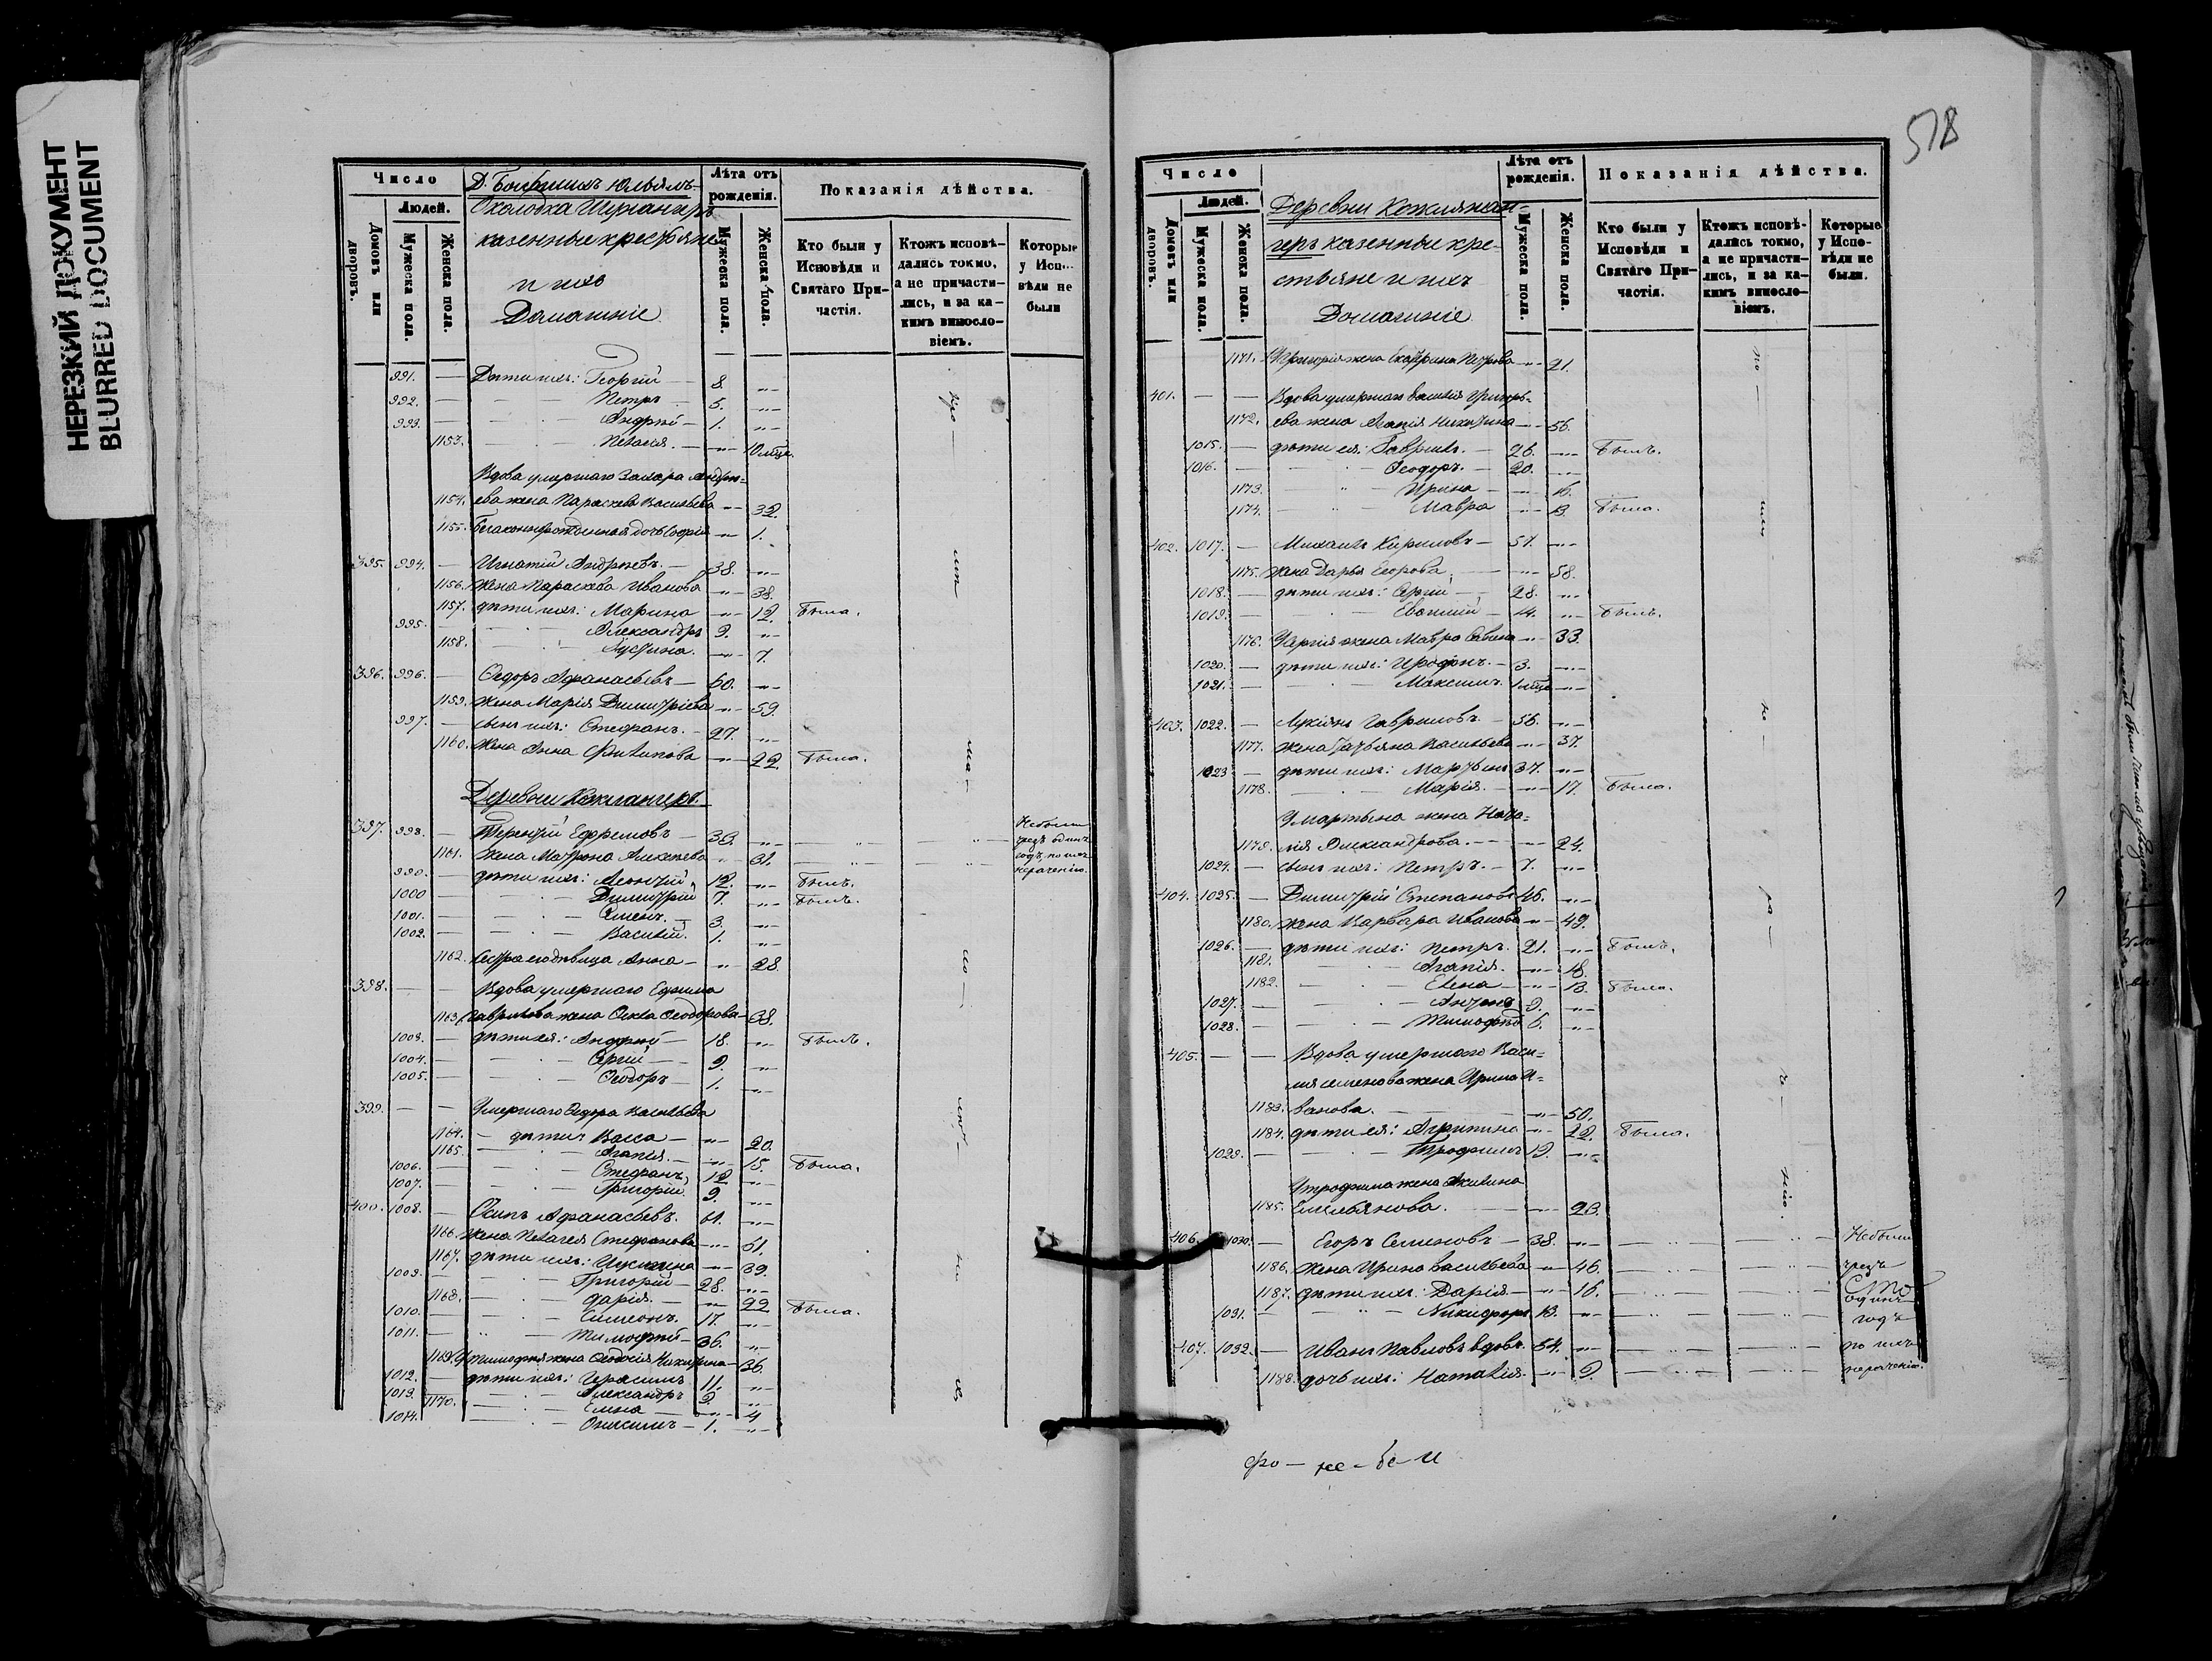 НЕРЕЗКИЙ ДОКУМЕНТ
BLURRED DOCUMENT
Число
Людей.
Домовъ или дворовъ.
Мужеска пола.
Женска пола.
казенные крестьяне
и ихъ
Домашніе
Лѣта отъ рожденія.
Мужеска пола.
Женска пола.
Показанія дѣйства.
Кто были у Исповѣди и Святаго Причастія.
Ктожъ исповѣдались токмо, а не причастились, и за какимъ винословіемъ.
Которые у Исп... вѣди не были
991. — Дѣти ихъ: Георгій — 8. —"—
992. — Петръ 5. —"—
993. — Андрей — 1. —"—
1153. — Пелагія. —"— 10 мѣся.
Вдова умершаго Захара Андре=
1154. ева жена Параскева Васильева —"— 32.
1155. Беззаконнорожденная дочь Софія —"— 1.
395. 994. — Игнатій Андреевъ. — 38. —"—
1156. жена Параскева Иванова —"— 38.
1157. дѣти ихъ: Марина —"— 12. Была.
995. — Александръ 9. —"—
1158. — Іустина. —"— 7.
396. 996. — Ѳедоръ Афанасьевъ — 60. —"—
1159. жена Марія Димитріева —"— 59.
997. — сынъ ихъ: Стефанъ. — 27. —"—
1160. жена Анна Филипова —"— 22. Была.
Деревни Кожлангеръ.
397. 998. — Терентій Ефремовъ — 33. —"— Небыли
1161. жена Матрона Алексеева —"— 31. чрезъ одинъ годъ, по ихъ нераченію.
999. — дѣти ихъ: Леонтій, 12. —"— Былъ.
1000 — Димитрій 7. —"— Былъ.
1001. — Симеонъ. — 3. —"—
1002. — Василій. 1. —"—
1162. сестра его дѣвица Анна — —"— 28.
398. — — Вдова умершаго Ефима
1163. Гаврилова жена Ѳекла Ѳеодорова — 38.
1003. — дѣти ея: Андрей — 18. —"— Былъ.
1004. — Сергій 9. —"—
1005. — Ѳеодоръ — 1. —"—
399. — — Умершаго Ѳедора Васильева
1164. — дѣти: Васса — —"— 20.
1165. — Агапія. — —"— 15. Была.
1006. — Стефанъ, 12. —"—
1007. — Григорій. 9. —"—
400. 1008. — Осипъ Афанасьевъ. 61. —"—
1166. жена Пелагея Стефанова —"— 61.
1167. дѣти ихъ: Иустина —"— 39.
1009. — Григорій — 28. —"—
1168. — Дарія. — —"— 22 Была.
1010. — Симеонъ. 17. —"—
1011. — Тимофей — 36. —"—
1169. У Тимофея жена Ѳеодосія Никитина — 36.
1012. — дѣти ихъ: Герасимъ 11. —"—
1013. — Александръ 9. —"—
1170. — Елена —"— 4
1014. — Онисимъ — 1. —"—
518
Число
Людей.
Домовъ или дворовъ.
Мужеска пола.
Женска пола.
Деревни Кожлянан=
геръ казенные кре=
стьяне и ихъ
Домашніе
Лѣта отъ рожденія.
Мужеска пола.
Женска пола.
Показанія дѣйства.
Кто были у Исповѣди и Святаго Причастія.
Ктожъ исповѣдались токмо, а не причастились, и за какимъ винословіемъ.
Которые у Исповѣди не были.
1171. У Григорія жена Екатерина Петрова —"— 21.
401. — — Вдова умершаго Василія Григорь=
1172. ева жена Агапія Никитина —"— 56.
1015. — дѣти ея: Гаврилъ. — 26. —"— Былъ.
1016. — Ѳеодоръ. — 20. —"—
1173. — Ирина — —"— 16.
1174. — Мавра —"— 13. Была.
402. 1017. — Михаилъ Кириловъ — 51. —"—
1175. жена Дарья Егорова. —"— 58.
1018. — дѣти ихъ: Сергій — 28. —"—
1019. — Евсигній — 14. —"— Былъ.
1176. У Сергія жена Мавра Савина —"— 33.
1020. — дѣти ихъ: Иродіонъ. — 3. —"—
1021. — Максимъ. 1 мѣся —"—
403. 1022. — Лукіянъ Гавриловъ. — 56. —"—
1177. жена Татьяна Васильева —"— 37.
1023 — дѣти ихъ: Мартынъ 37. —"—
1178. — Марія. — —"— 17. Была.
У Мартына жена Ната=
1179. лія Александрова. —"— 24.
1024. — сынъ ихъ: Петръ. — 7. —"—
404. 1025. — Димитрій Степановъ 46. —"—
1180. жена Варвара Иванова —"— 49.
1026. — дѣти ихъ: Петръ. 21. —"— Былъ.
1181. — Агапія. —"— 18.
1182. — Елена —"— 13. Была.
1027. — Антонъ 9. —"—
1028. — Тимофей 6. —"—
405. — — Вдова умершаго Васи=
лія Семенова жена Ирина И=
1183. ванова. —"— 50.
1184. дѣти ея: Агрипина —"— 22. Была.
1029. — Трофимъ 19. —"—
У Трофима жена Акилина
1185. Емельянова. —"— 23.
406. 1030. — Егоръ Семеновъ — 38. —"— Небыли
1186. жена Ирина Васильева —"— 46. чрезъ
1187. дѣти ихъ: Дарія — —"— 16. одинъ
1031. — Никифоръ 13. —"— годъ
407. 1032. — Иванъ Павловъ вдовъ. 54. —"— по ихъ
1188. дочь ихъ: Наталія. —"— 9. нераченію.